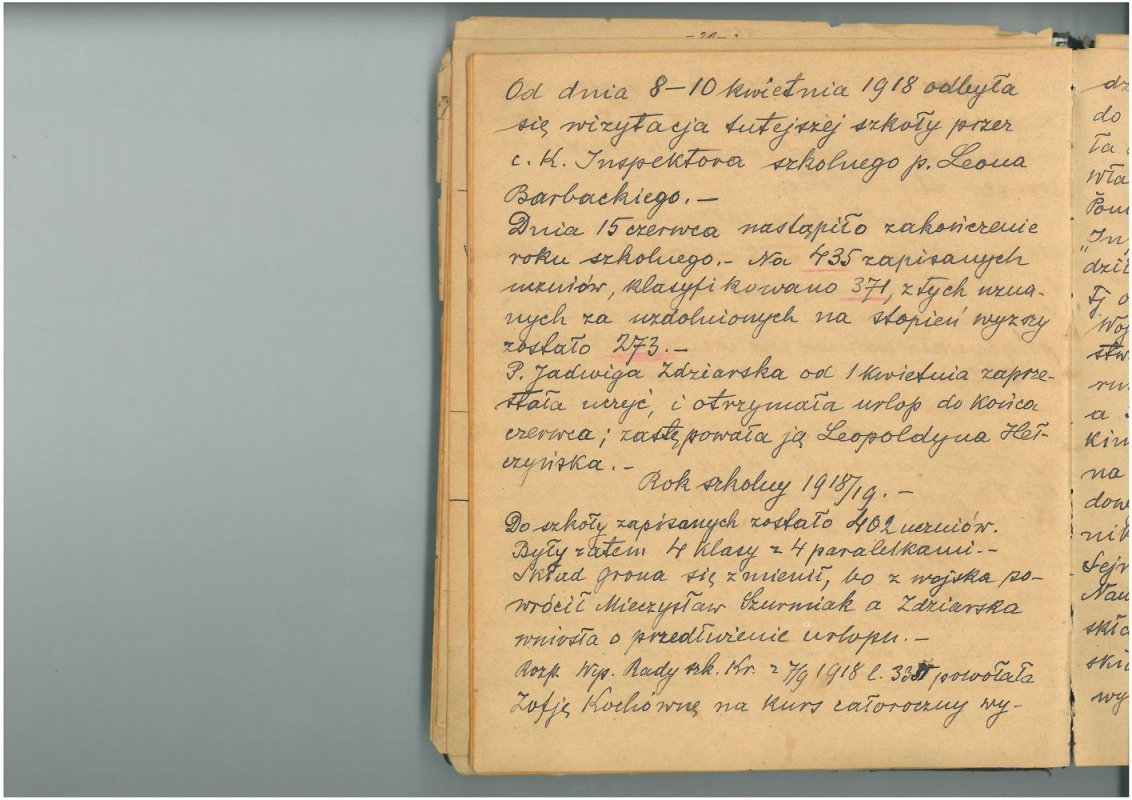 Od dnia 8–10 kwietnia 1918 odbyła
się wizytacja tutejszej szkoły przez
c. K. Inspektora szkolnego p. Leona
Barbackiego. –
Dnia 15 czerwca nastąpiło zakończenie
roku szkolnego. – Na 435 zapisanych
uczniów, klasyfikowano 371, z tych uzna-
nych za uzdolnionych na stopień wyższy
zostało 273. –
P. Jadwiga Zdziarska od 1 kwietnia zaprze-
stała uczyć, i otrzymała urlop do końca
czerwca; zastępowała ją Leopoldyna Heł-
czyńska. –
Rok szkolny 1918/19. –
Do szkoły zapisanych zostało 402 uczniów.
Były zatem 4 klasy z 4 paralelkami. –
Skład grona się zmienił, bo z wojska po-
wrócił Mieczysław Szurmiak a Zdziarska
wniosła o przedłużenie urlopu. –
Rozp. Wyp. Rady szk. Kr. z 7/9 1918 l. powołała
Zofję Kochównę na kurs całoroczny wy-
dz
do
ła
wła
Pom
"In
dzi
Tj o
Woj
stw
ru
a
kim
na
dow
nik
Sejm
Nau
skła
ski
wy